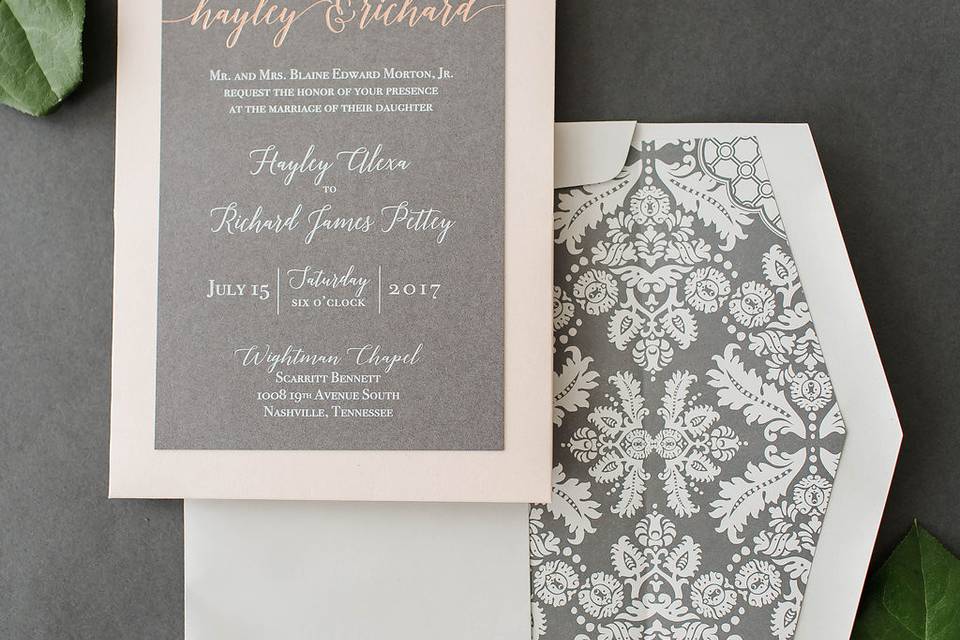 hayley & richard
Mr. and Mrs. Blaine Edward Morton, Jr.
request the honor of your presence
at the marriage of their daughter
Hayley Alexa
to
Richard James Pettey
July 15 | Saturday | 2017
six o'clock
Wightman Chapel
Scarritt Bennett
1008 19th Avenue South
Nashville, Tennessee